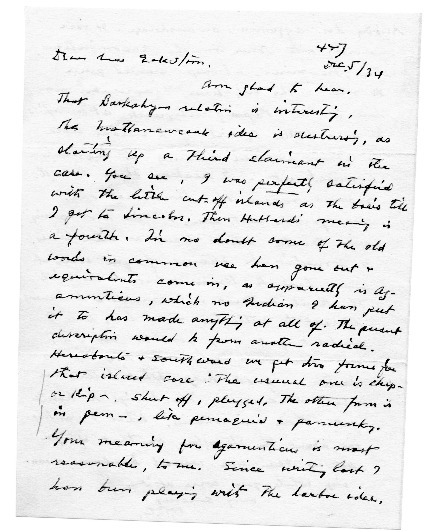 457
Dec 5/34
Dear Mrs Eckstorm.
Am glad to hear.
That relation is interesting,
the idea is distressing, as
starting up a third claimant in the
case. You see, I was perfectly satisfied
with the little cut-off islands as the basis till
I got to Lincoln. Then Hubbard's meaning is
a fourth. I've no doubt some of the old
words in common use have gone out +
equivalents come in, as apparently is Ag-
amenticus, which no Indian I have put
it to has made anything at all of. The present
description would be from another radical.
Hereabouts + southward we get two forms for
that island case: The usual one is chip-
or kip-. Shut off, plugged. The other form is
in pem-, like pemaquid + pamunky.
Your meaning for agamenticus is most
reasonable, to me. Since writing last I
have been playing with the harbor idea,